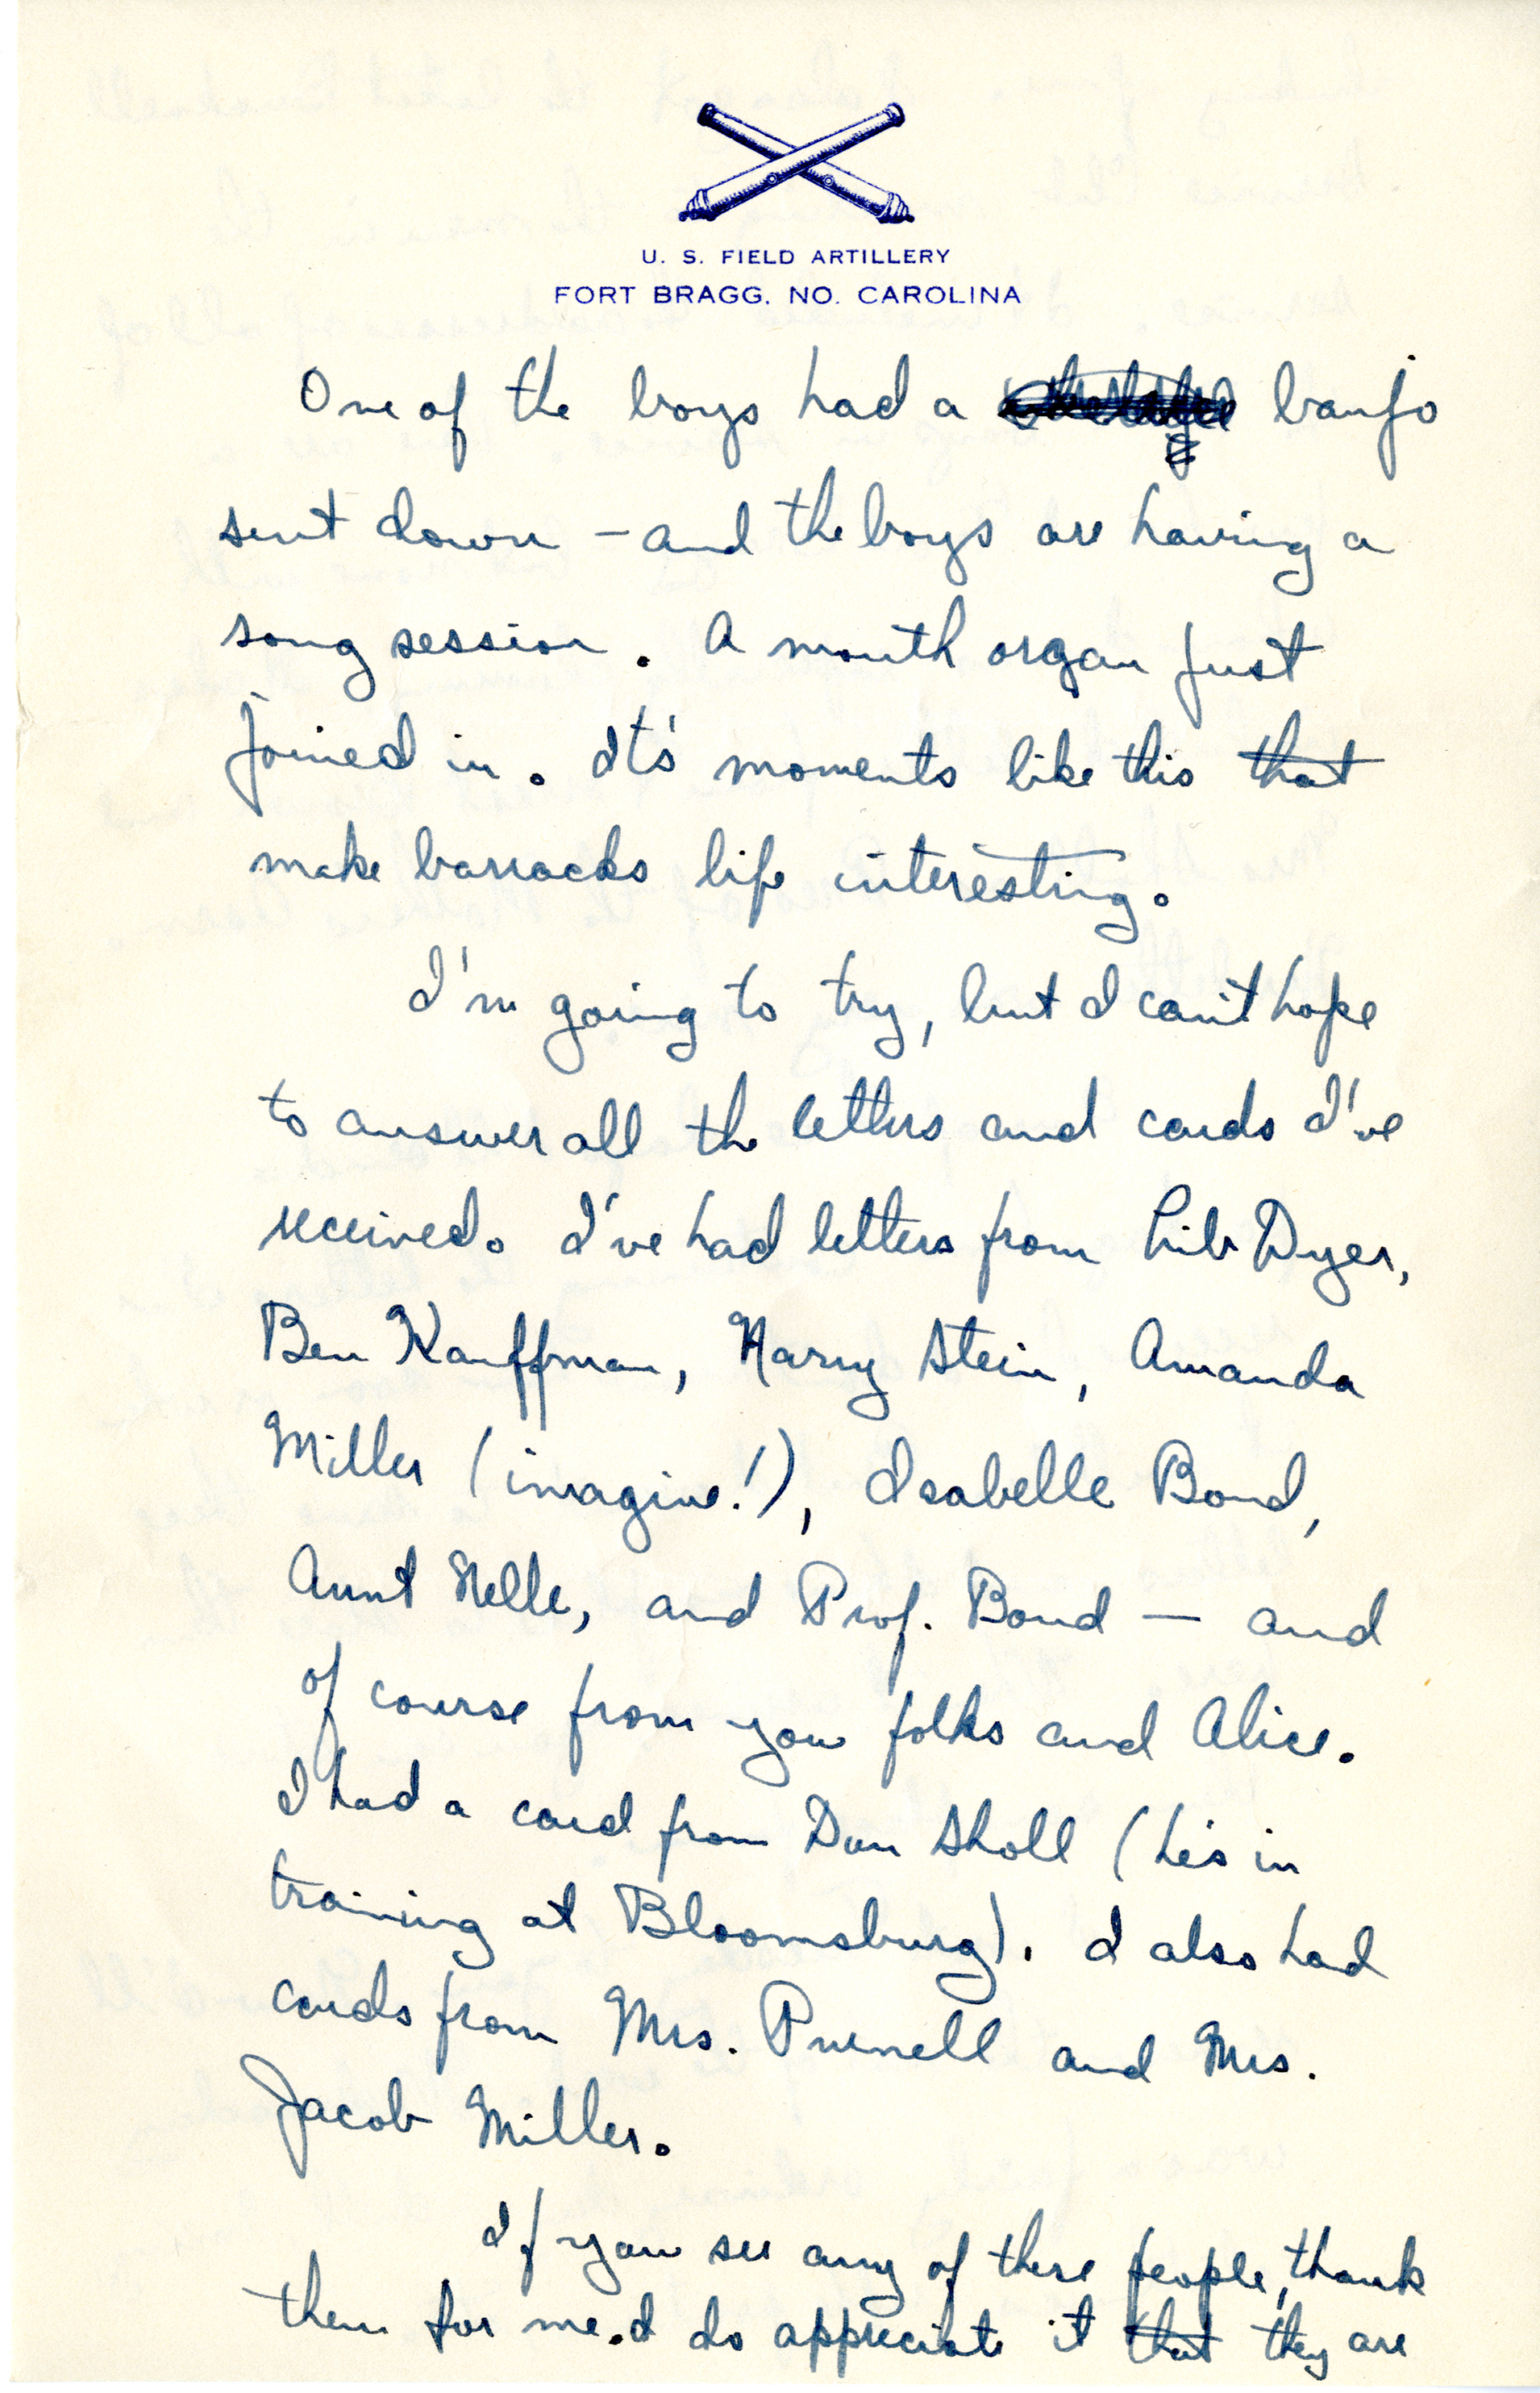 U. S. FIELD ARTILLERY
FORT BRAGG, NO. CAROLINA
One of the boys had a banjo
sent down – and the boys are having a
song session. A mouth organ just
joined in. It's moments like this that
make barracks life interesting.
I'm going to try, but I can't hope
to answer all the letters and cards I've
received. I've had letters from Lib Dyer,
Ben Kauffman, Harry Stein, Amanda
Miller (imagine!), Isabelle Bond,
Aunt Nelle, and Prof. Bond — and
of course from you folks and Alice.
I had a card from Dan Sholl (he's in
training at Bloomsburg). I also had
cards from Mrs. Purnell and Mrs.
Jacob Miller.
If you see any of these people, thank
them for me. I do appreciate it that they are